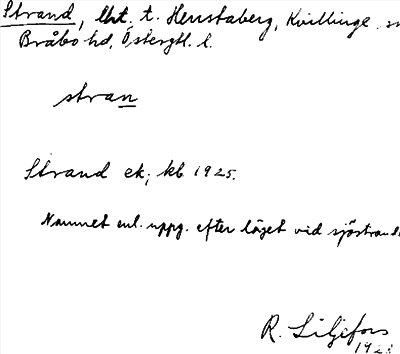 Strand, lht. t. Henstaberg, Kvillinge
Bråbo hd, Östergtl. l.
stran
Strand ek; kb 1925.
Namnet enl. uppg. efter läget vid sjöstrand
R. Liljefors